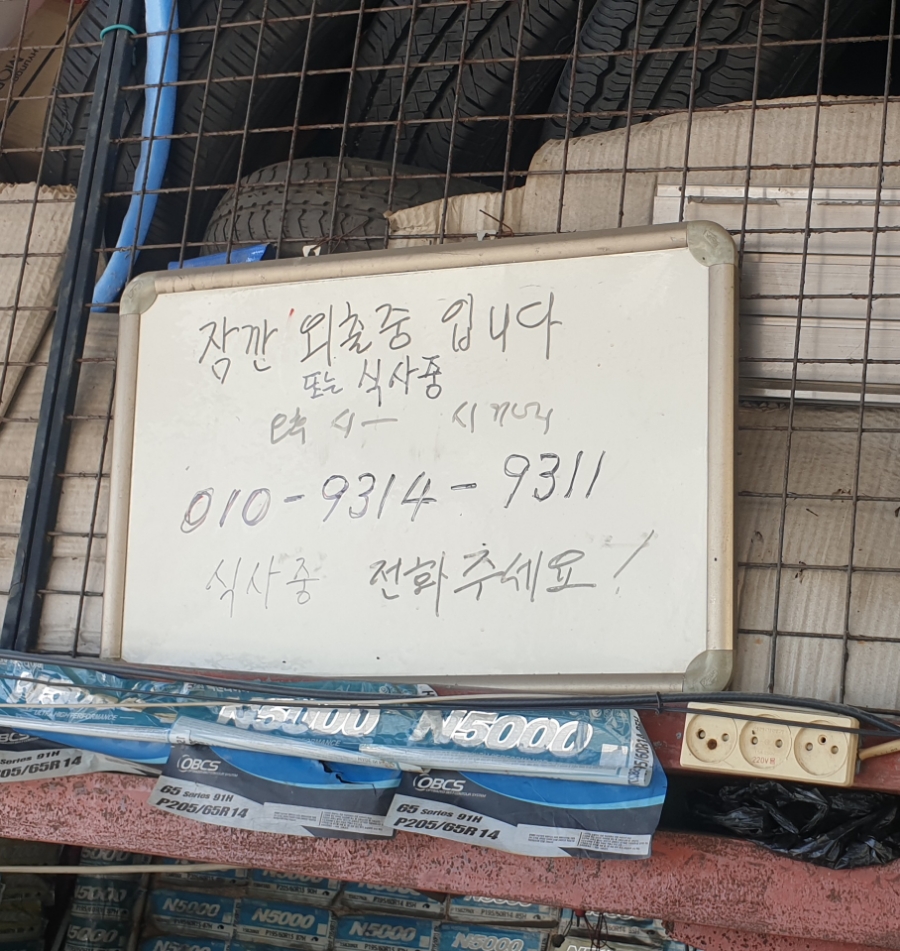 잠깐 외출중 입니다
또는 식사중
시 시까지
010-9314-9311
식사중 전화주세요!
N5000 N5000
OBCS
65 Series 91H
P205/65R14
OBCS
65 Series 91H
P205/65R14
05/65R14
220V
N5000
N5000
N5000
N5000